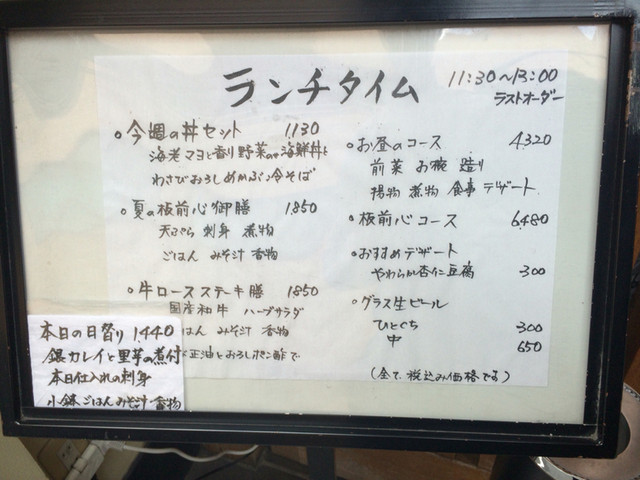 ランチタイム
11:30〜13:00
ラストオーダー
○今週の丼セット 1,130
海老マヨと香り野菜の海鮮丼と
わさびおろしめかぶ冷そば
○夏の板前心御膳 1,850
天ぷら 刺身 煮物
ごはん みそ汁 香物
○牛ロースステーキ膳 1,850
国産和牛 ハーブサラダ
はん みそ汁 香物
正油とおろしポン酢で
○お昼のコース 4,320
前菜 お椀 造り
揚物 煮物 食事 デザート
○板前心コース 6,480
○おすすめデザート
やわらか杏仁豆腐 300
○グラス生ビール
ひとくち 300
中 650
(全て税込み価格です)
本日の日替り 1,440
銀カレイと里芋の煮付
本日仕入れの刺身
小鉢ごはんみそ汁 香物